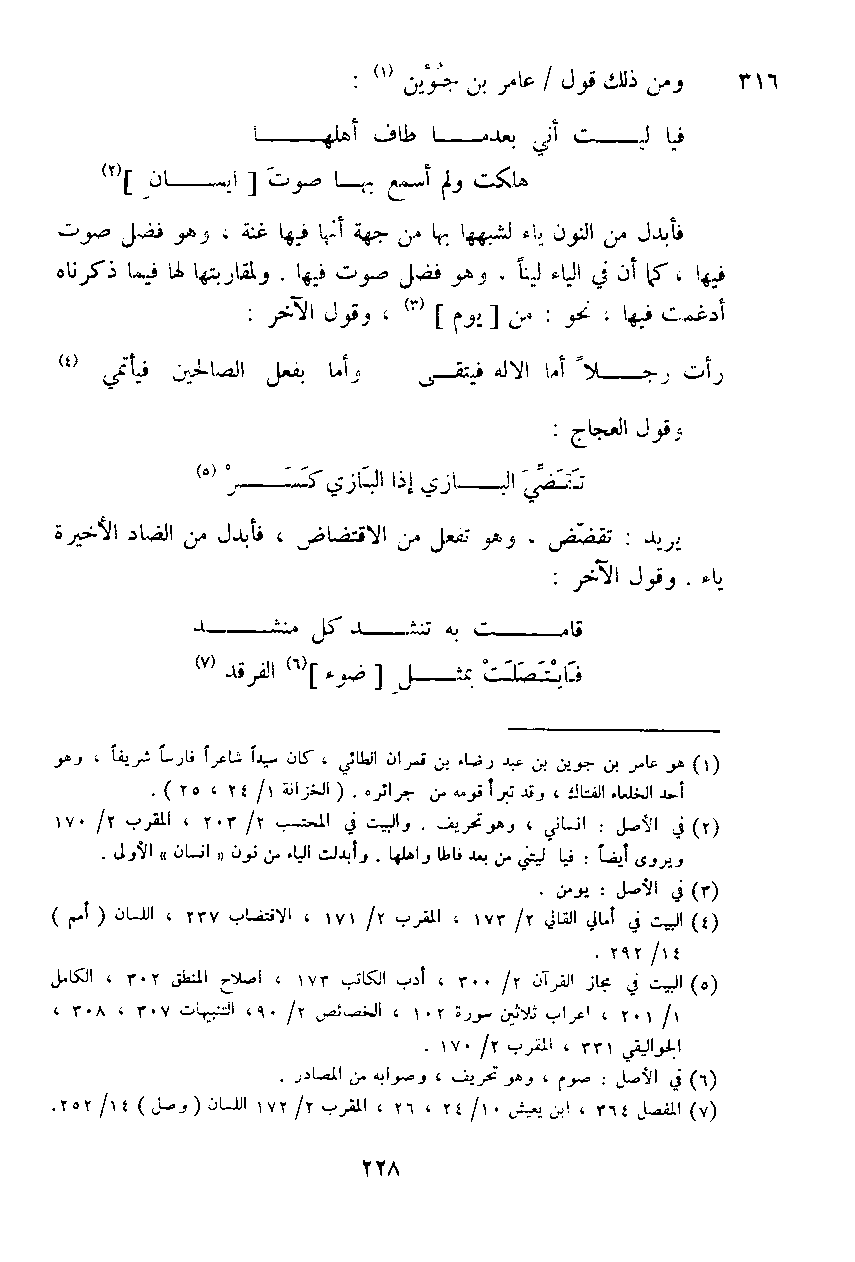 ٣١٦ ومن ذلك قول / عامر بن جُوَيْن (١) :
فيا ليت أني بعدما طاف أهلها
هلكت ولم أسمع بها صوتَ [ ايسانِ ](٢)
فأبدل من النون ياء لشبهها بها من جهة أنها فيها غنة ، وهو فضل صوت
فيها ، كما أن في الياء ليناً . وهو فضل صوت فيها . ولمقاربتها لها فيما ذكرناه
أدغمت فيها ، نحو : من [ يوم ] (٣) ، وقول الآخر :
رأت رجلاً أما الاله فيتقى وأما بفعل الصالحين فيأتمي (٤)
وقول العجاج :
تَقَضِّيَ البازي إذا البَازي كَسَرْ (٥)
يريد : تقضّض . وهو تفعل من الاقتضاض ، فأبدل من الضاد الأخيرة
ياء . وقول الآخر :
قامت به تنشد كل منشد
فَايْتَصَلَتْ بمثلِ [ ضوء ](٦) الفرقد (٧)
(١) هو عامر بن جوين بن عبد رضاء بن قمران الطائي ، كان سيداً شاعراً فارساً شريفاً ، وهو
أحد الخلعاء الفتاك ، وقد تبرأ قومه من جرائره . ( الخزانة ١/ ٢٤ ، ٢٥ ) .
(٢) في الأصل : انساني ، وهو تحريف . والبيت في المحتسب ٢/ ٢٠٣ ، المقرب ٢/ ١٧٠
ويروى أيضاً : فيا ليتني من بعد فاطا واهلها . وأبدلت الياء من نون « انسان » الأولى .
(٣) في الأصل : يومن .
(٤) البيت في أمالي القالي ٢/ ١٧٣ ، المقرب ٢/ ١٧١ ، الاقتضاب ٢٣٧ ، اللسان ( أمم )
١٤/ ٢٩٢ .
(٥) البيت في مجاز القرآن ٢/ ٣٠٠ ، أدب الكاتب ١٧٣ ، اصلاح المنطق ٣٠٢ ، الكامل
١/ ٢٠١ ، اعراب ثلاثين سورة ١٠٢ ، الخصائص ٢/ ٩٠، التنبيهات ٣٠٧ ، ٣٠٨ ،
الجواليقي ٣٣١ ، المقرب ٢/ ١٧٠ .
(٦) في الأصل : صوم ، وهو تحريف ، وصوابه من المصادر .
(٧) المفصل ٣٦٤ ، ابن يعيش ١٠/ ٢٤ ، ٢٦ ، المقرب ٢/ ١٧٢ اللسان ( وصل ) ١٤/ ٢٥٢.
٢٢٨